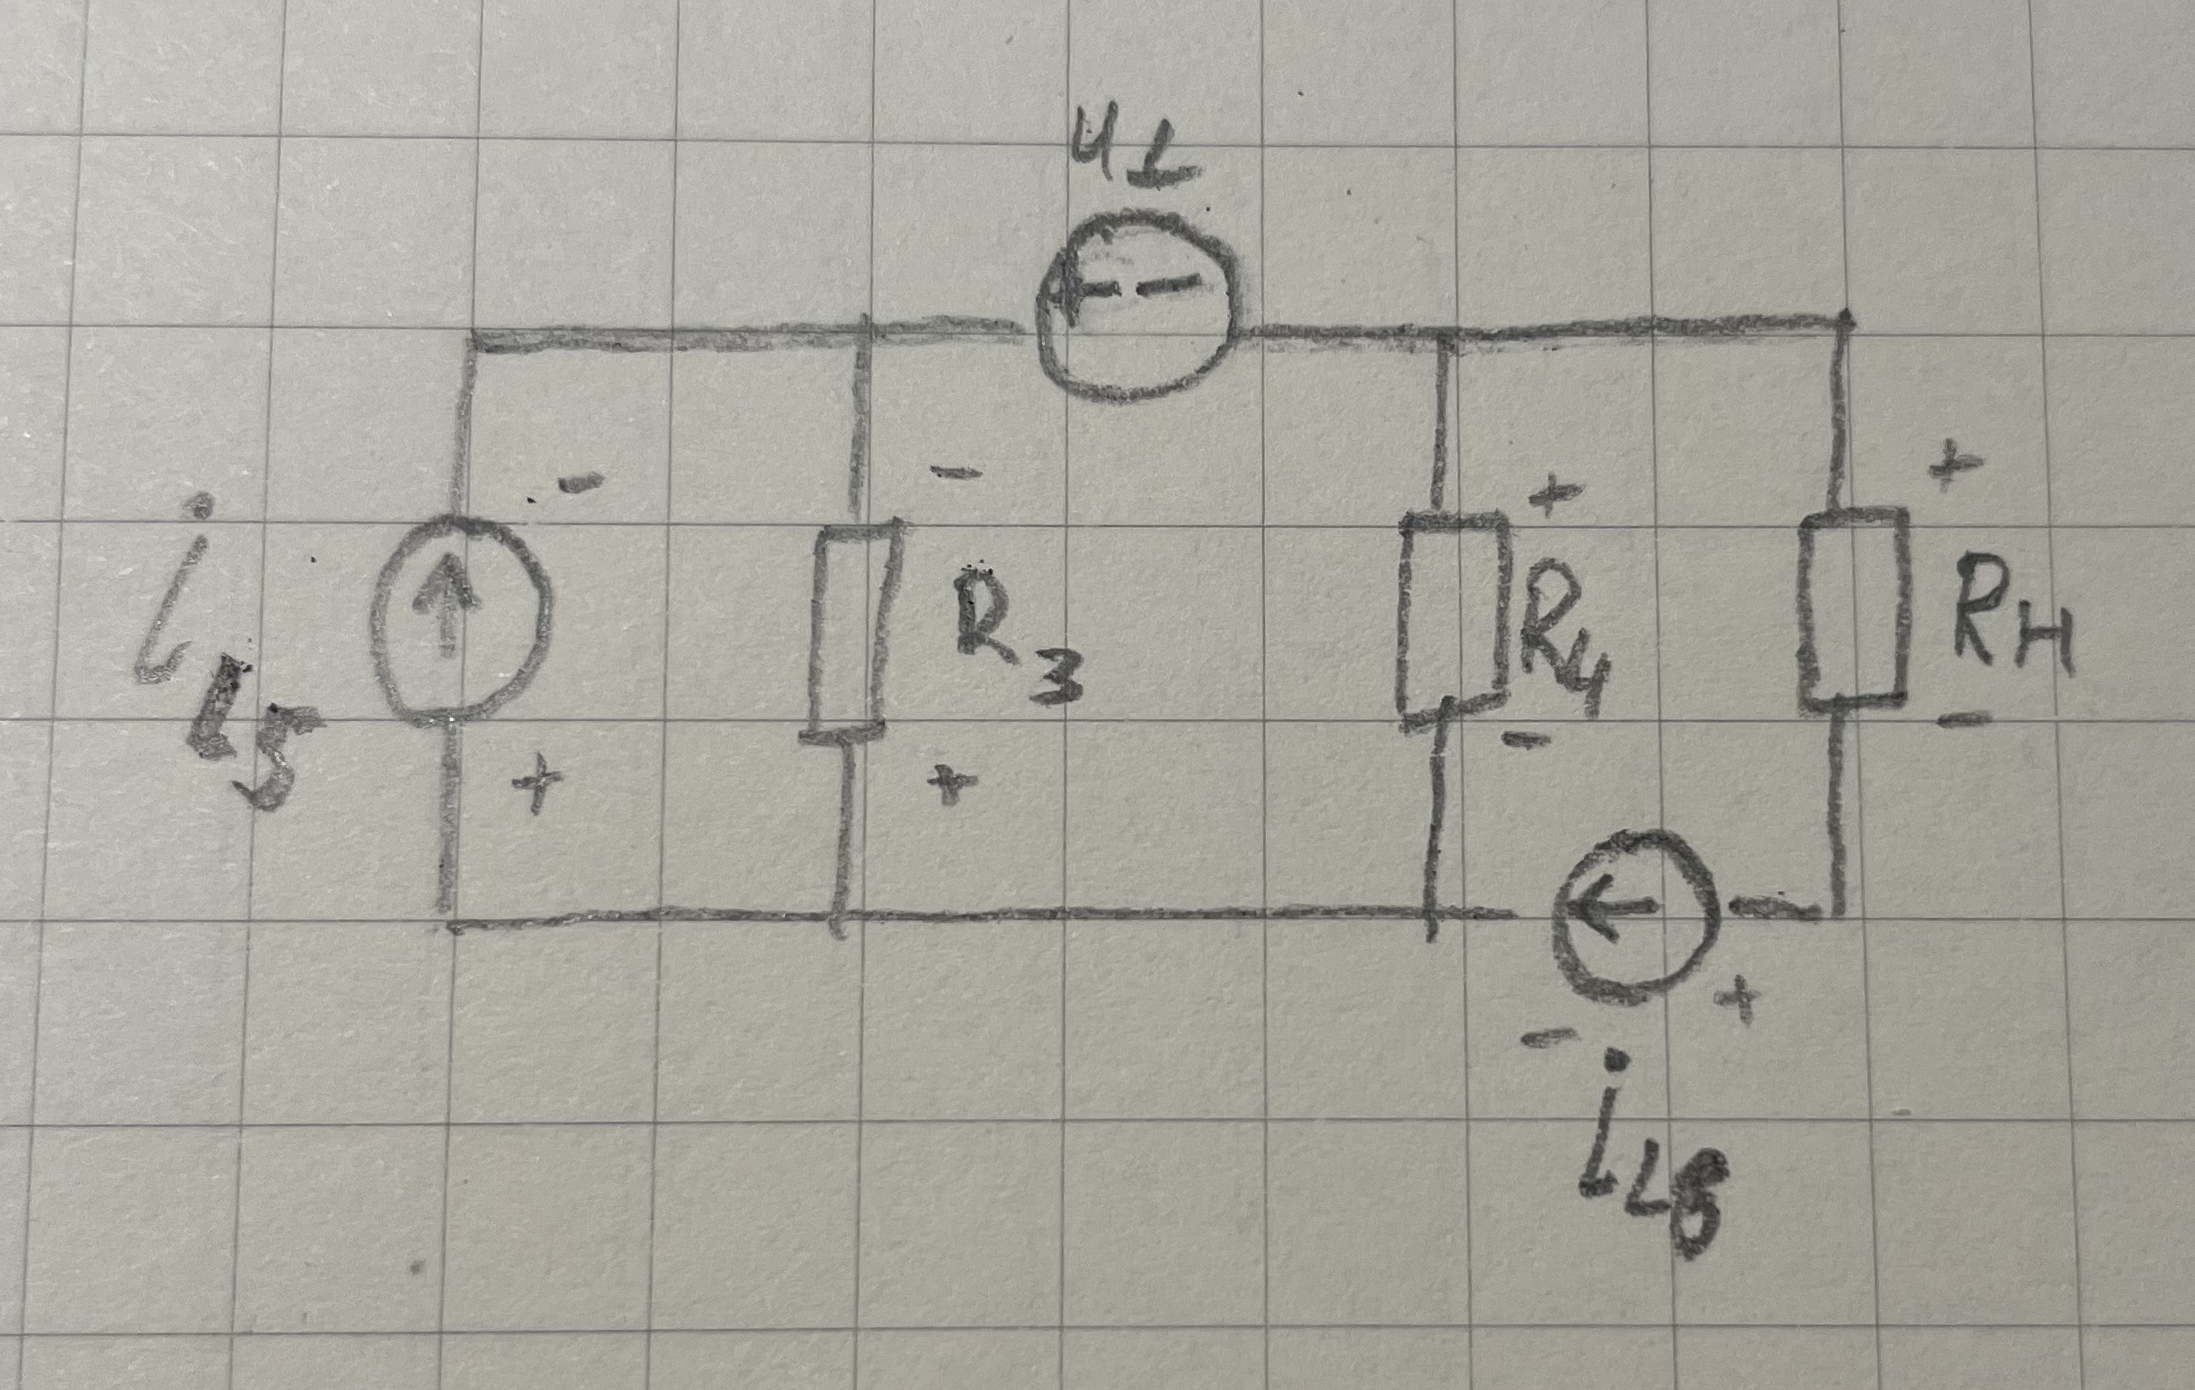 u1
+ -
- - + +
i L5 R3 R4 RH
+ + - -
- +
iL6